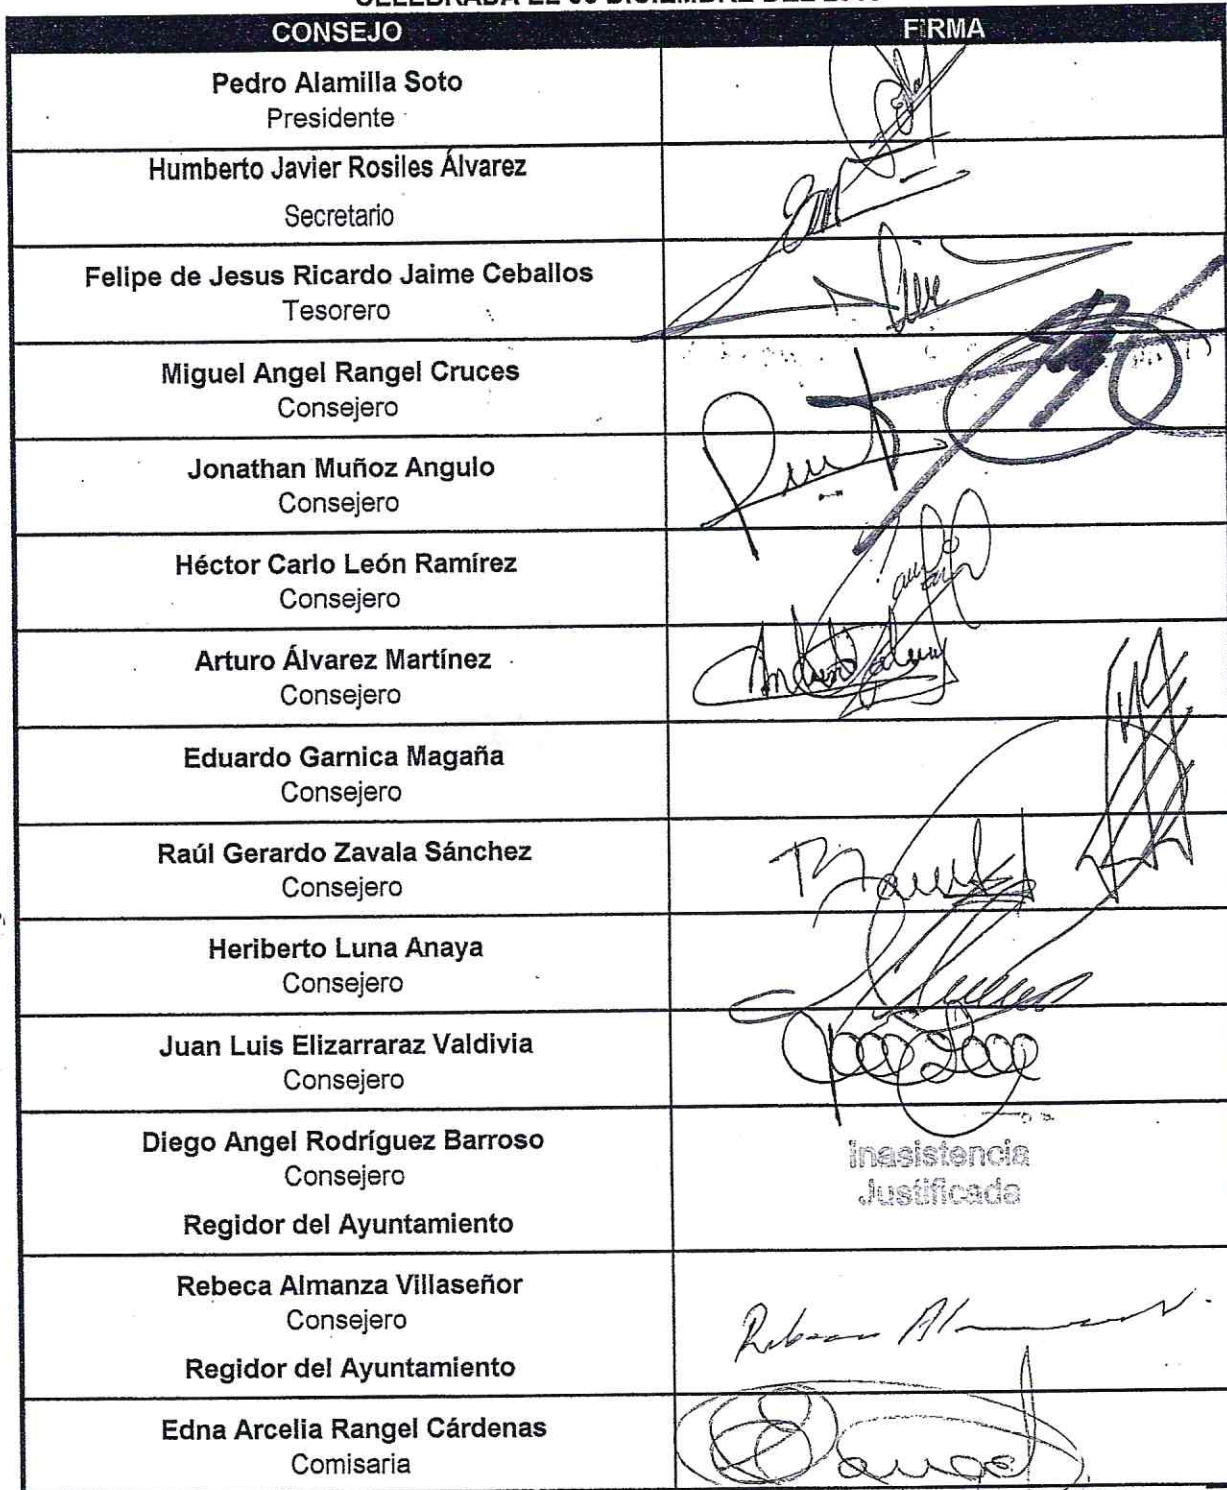 CONSEJO FIRMA
Pedro Alamilla Soto
Presidente
Humberto Javier Rosiles Álvarez
Secretario
Felipe de Jesus Ricardo Jaime Ceballos
Tesorero
Miguel Angel Rangel Cruces
Consejero
Jonathan Muñoz Angulo
Consejero
Héctor Carlo León Ramírez
Consejero
Arturo Álvarez Martínez
Consejero
Eduardo Garnica Magaña
Consejero
Raúl Gerardo Zavala Sánchez
Consejero
Heriberto Luna Anaya
Consejero
Juan Luis Elizarraraz Valdivia
Consejero
Diego Angel Rodríguez Barroso
Consejero
Regidor del Ayuntamiento
Inasistencia
Justificada
Rebeca Almanza Villaseñor
Consejero
Regidor del Ayuntamiento
Rebeca Al
Edna Arcelia Rangel Cárdenas
Comisaria
Rangel